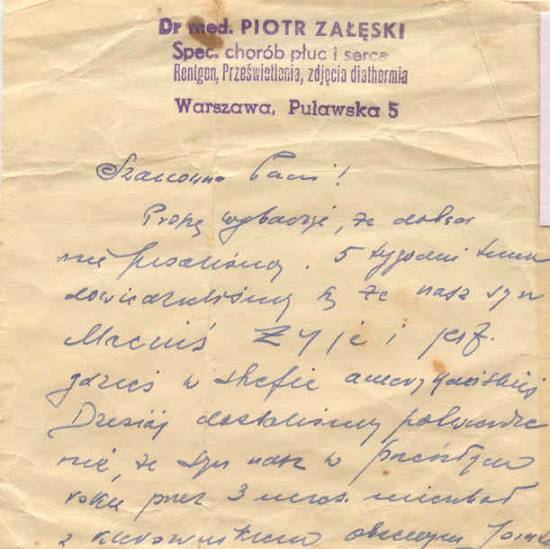 Dr med. PIOTR ZAŁĘSKI
Spec. chorób płuc i serca
Rentgen, Prześwietlenia, zdjęcia diathermia
Warszawa, Puławska 5
Szanowna Pani!
Proszę wybaczyć, że dotąd
nie pisaliśmy. 5 tygodni temu
dowiedzieliśmy się że nasz syn
Maciuś żyje i jest
gdzieś w strefie amerykańskiej
Dzisiaj dostaliśmy potwierdze
nie, że syn nasz w
roku przez 3 mies. mieszkał
z obecnym